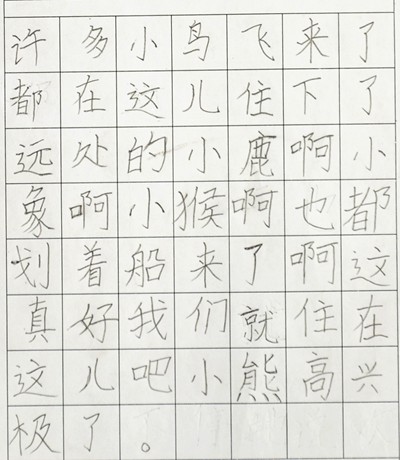 许多小鸟飞来了
都在这儿住下了
远处的小鹿啊小
象啊小猴啊也都
划着船来了啊这
真好我们就住在
这儿吧小熊高兴
极了。